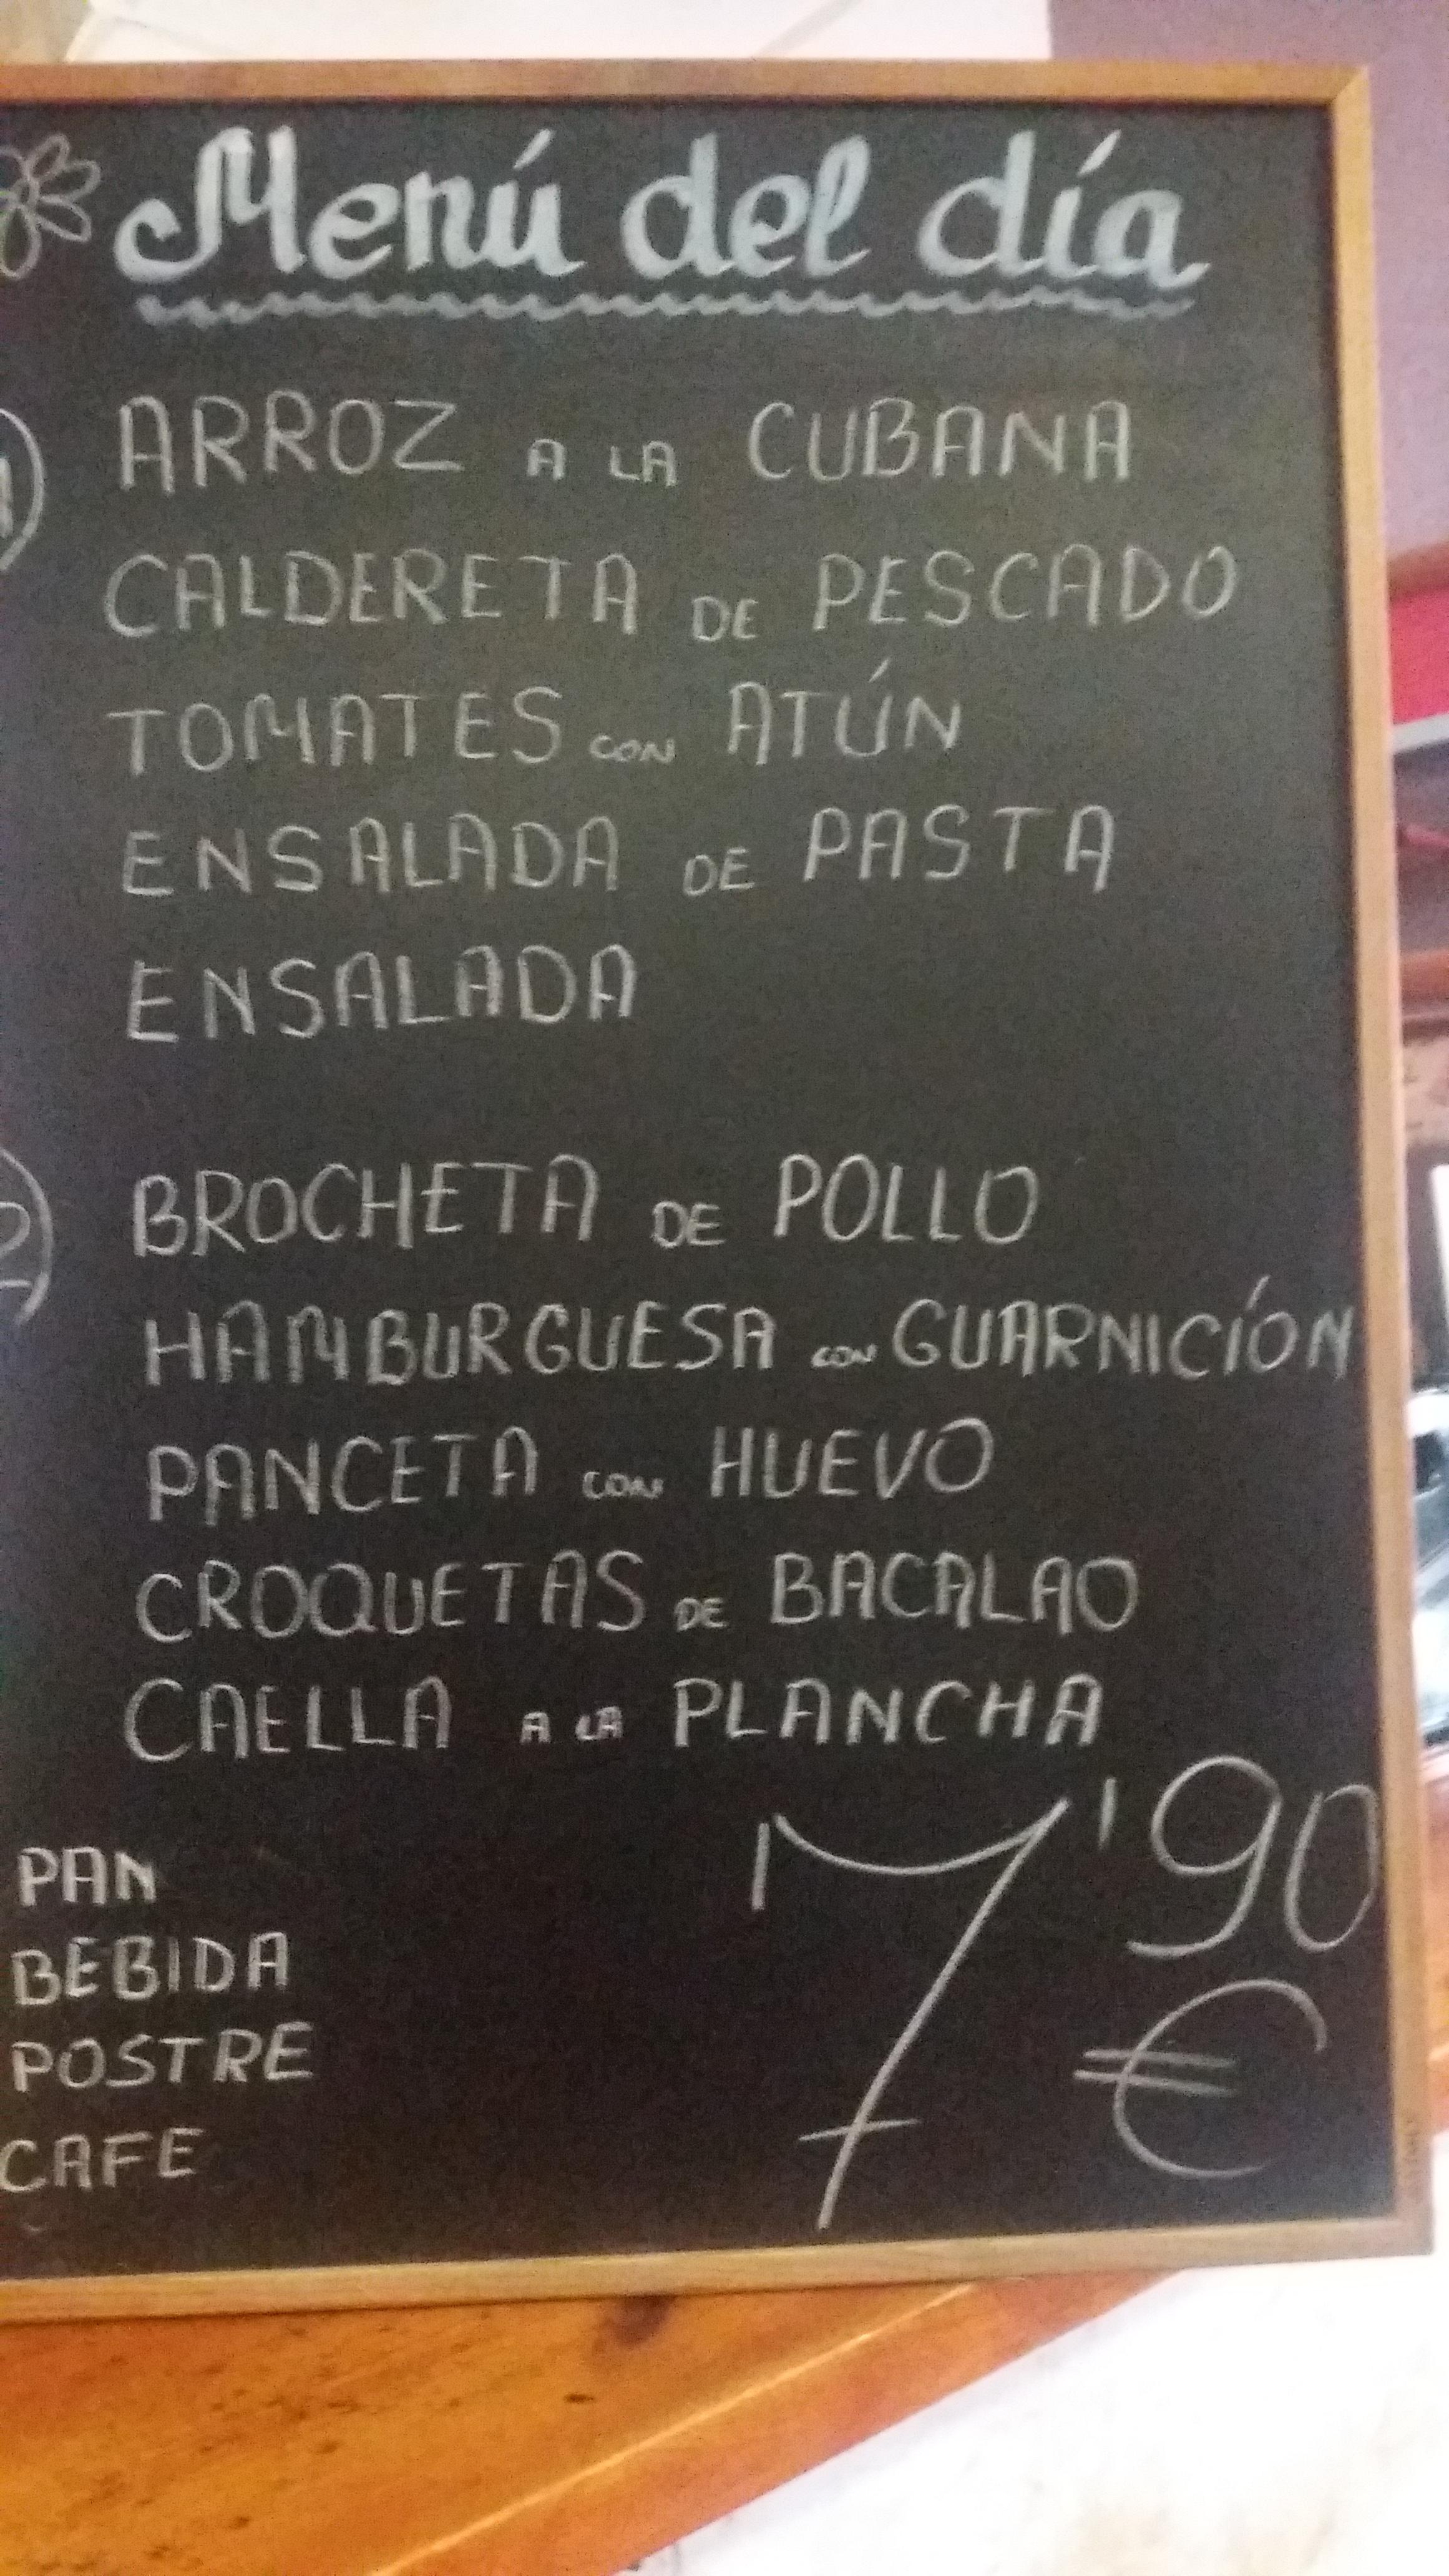 Menú del día
1
ARROZ A LA CUBANA
CALDERETA DE PESCADO
TOMATES CON ATÚN
ENSALADA DE PASTA
ENSALADA
2
BROCHETA DE POLLO
HAMBURGUESA CON GUARNICÍON
PANCETA CON HUEVO
CROQUETAS DE BACALAO
CAELLA A LA PLANCHA
PAN
BEBIDA
POSTRE
CAFE
7'90
€